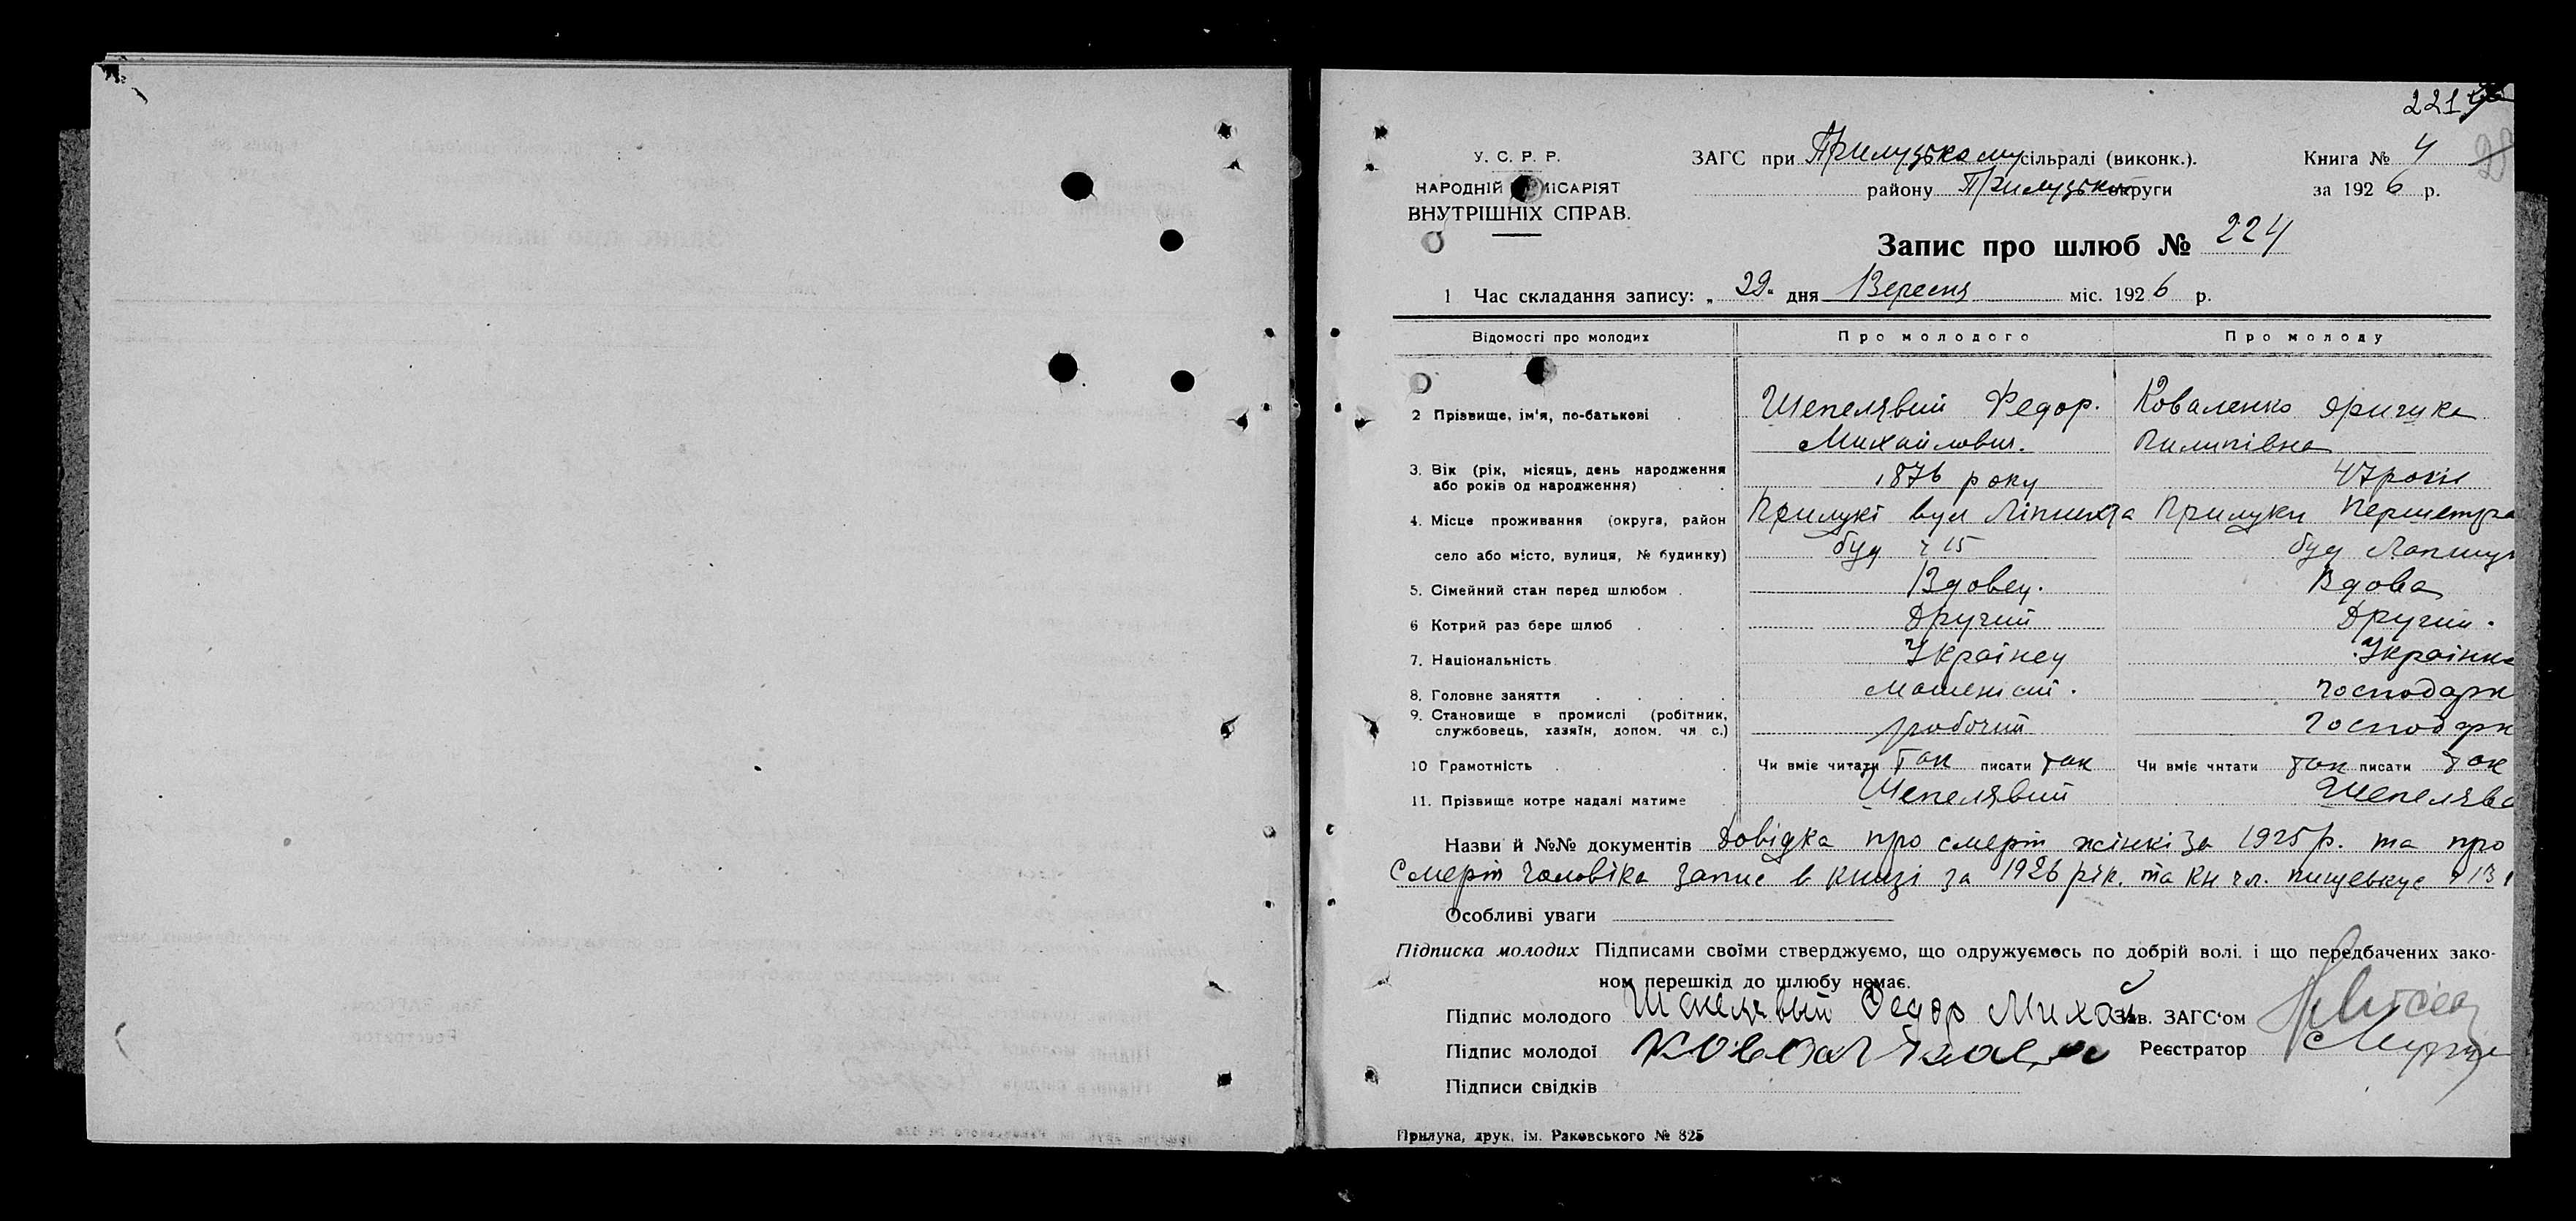 221
У. С. Р. Р.
ЗАГС при Прилуцькому сільраді (виконк.).
Книга № 4
НАРОДНІЙ КОМІСАРІЯТ
району Прилуцької округи
за 1926 р.
ВНУТРІШНІХ СПРАВ.
Запис про шлюб № 224
1 Час складання запису: „29" дня Вересня міс. 1926 р.
Відомості про молодих
Про молодого
Про молоду
2 Прізвище, ім'я, по-батькові
Шепелявий Федор.
Михайлович.
Коваленко Яришка
Пилипівна
3. Вік (рік, місяць, день народження
або років од народження)
1876 року
47 років
4. Місце проживання (округа, район
село або місто, вулиця, № будинку)
Прилукі вул
буд ч 15
Прилуки
буд
5. Сімейний стан перед шлюбом
Вдовец.
Вдова
6 Котрий раз бере шлюб
Другий
Другий.
7. Національність
Українец
Українка
8. Головне заняття
машеніст.
господарк
9. Становище в промислі (робітник,
службовець, хазяїн, допом. чл с.)
робочий
господарк
10 Грамотність
Чи вміє читати так писати так
Чи вміє читати так писати так
11. Прізвище котре надалі матиме
Шепелявий
Шепелява
Назви й №№ документів Довідка про смерть жінкі за 1925 р. та про
Смерть чоловіка запис в книзі за 1926 рік. та кн чл.
Особливі уваги
Підписка молодих Підписами своїми стверджуємо, що одружуємось по добрій волі. і що передбачених зако-
ном перешкід до шлюбу немає.
Підпис молодого Шепелявый Федор Михай
Зав. ЗАГС'ом
Підпис молодої
Реєстратор
Підписи свідків
Прилука, друк. ім. Раковського № 825